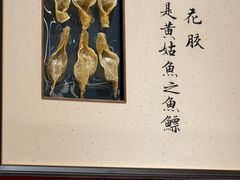 花胶
是黄姑魚之魚鳔